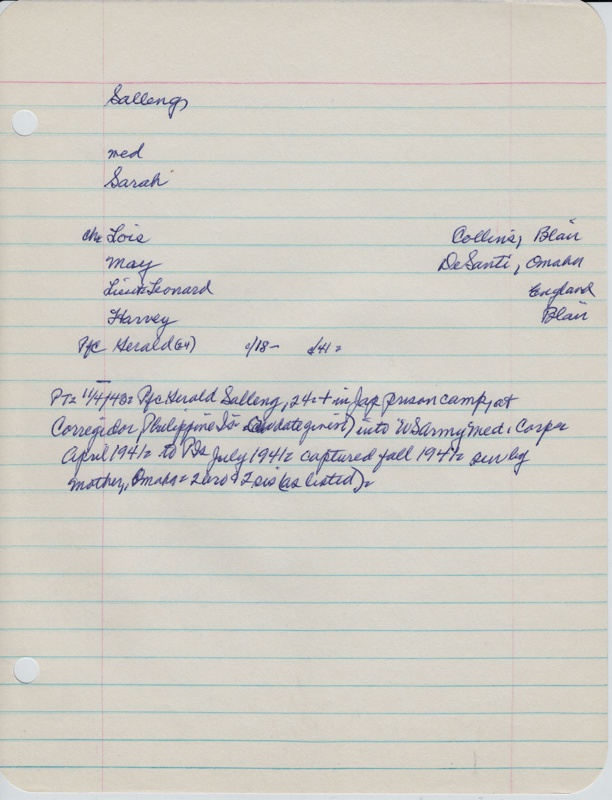 Salleng,
med
Sarah
ch= Lois Collins, Blair
May DeSanti, Omaha
Lieut Leonard England
Harvey Blair
Pfc Herald (24) c/18- d41=
PT= 11/4/43= Pfc Herald Salleng, 24= + in Jap prison camp, at
Corregidor, Philippine Is= (no date given) into "US army" med. Corps
April 1941= to PIs July 1941= captured fall 1941= sur by
mother, Omaha= 2 bro & 2 sis (as listed)=